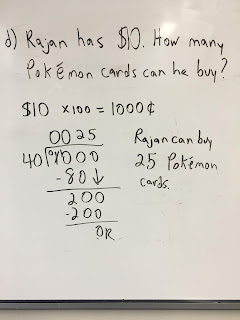 d) Rajan has $10. How many
Pokémon cards can he buy?
$10 ×100 = 1000¢
0025
40)1000
-80↓
200
-200
0R
Rajan can buy
25 Pokémon
cards.